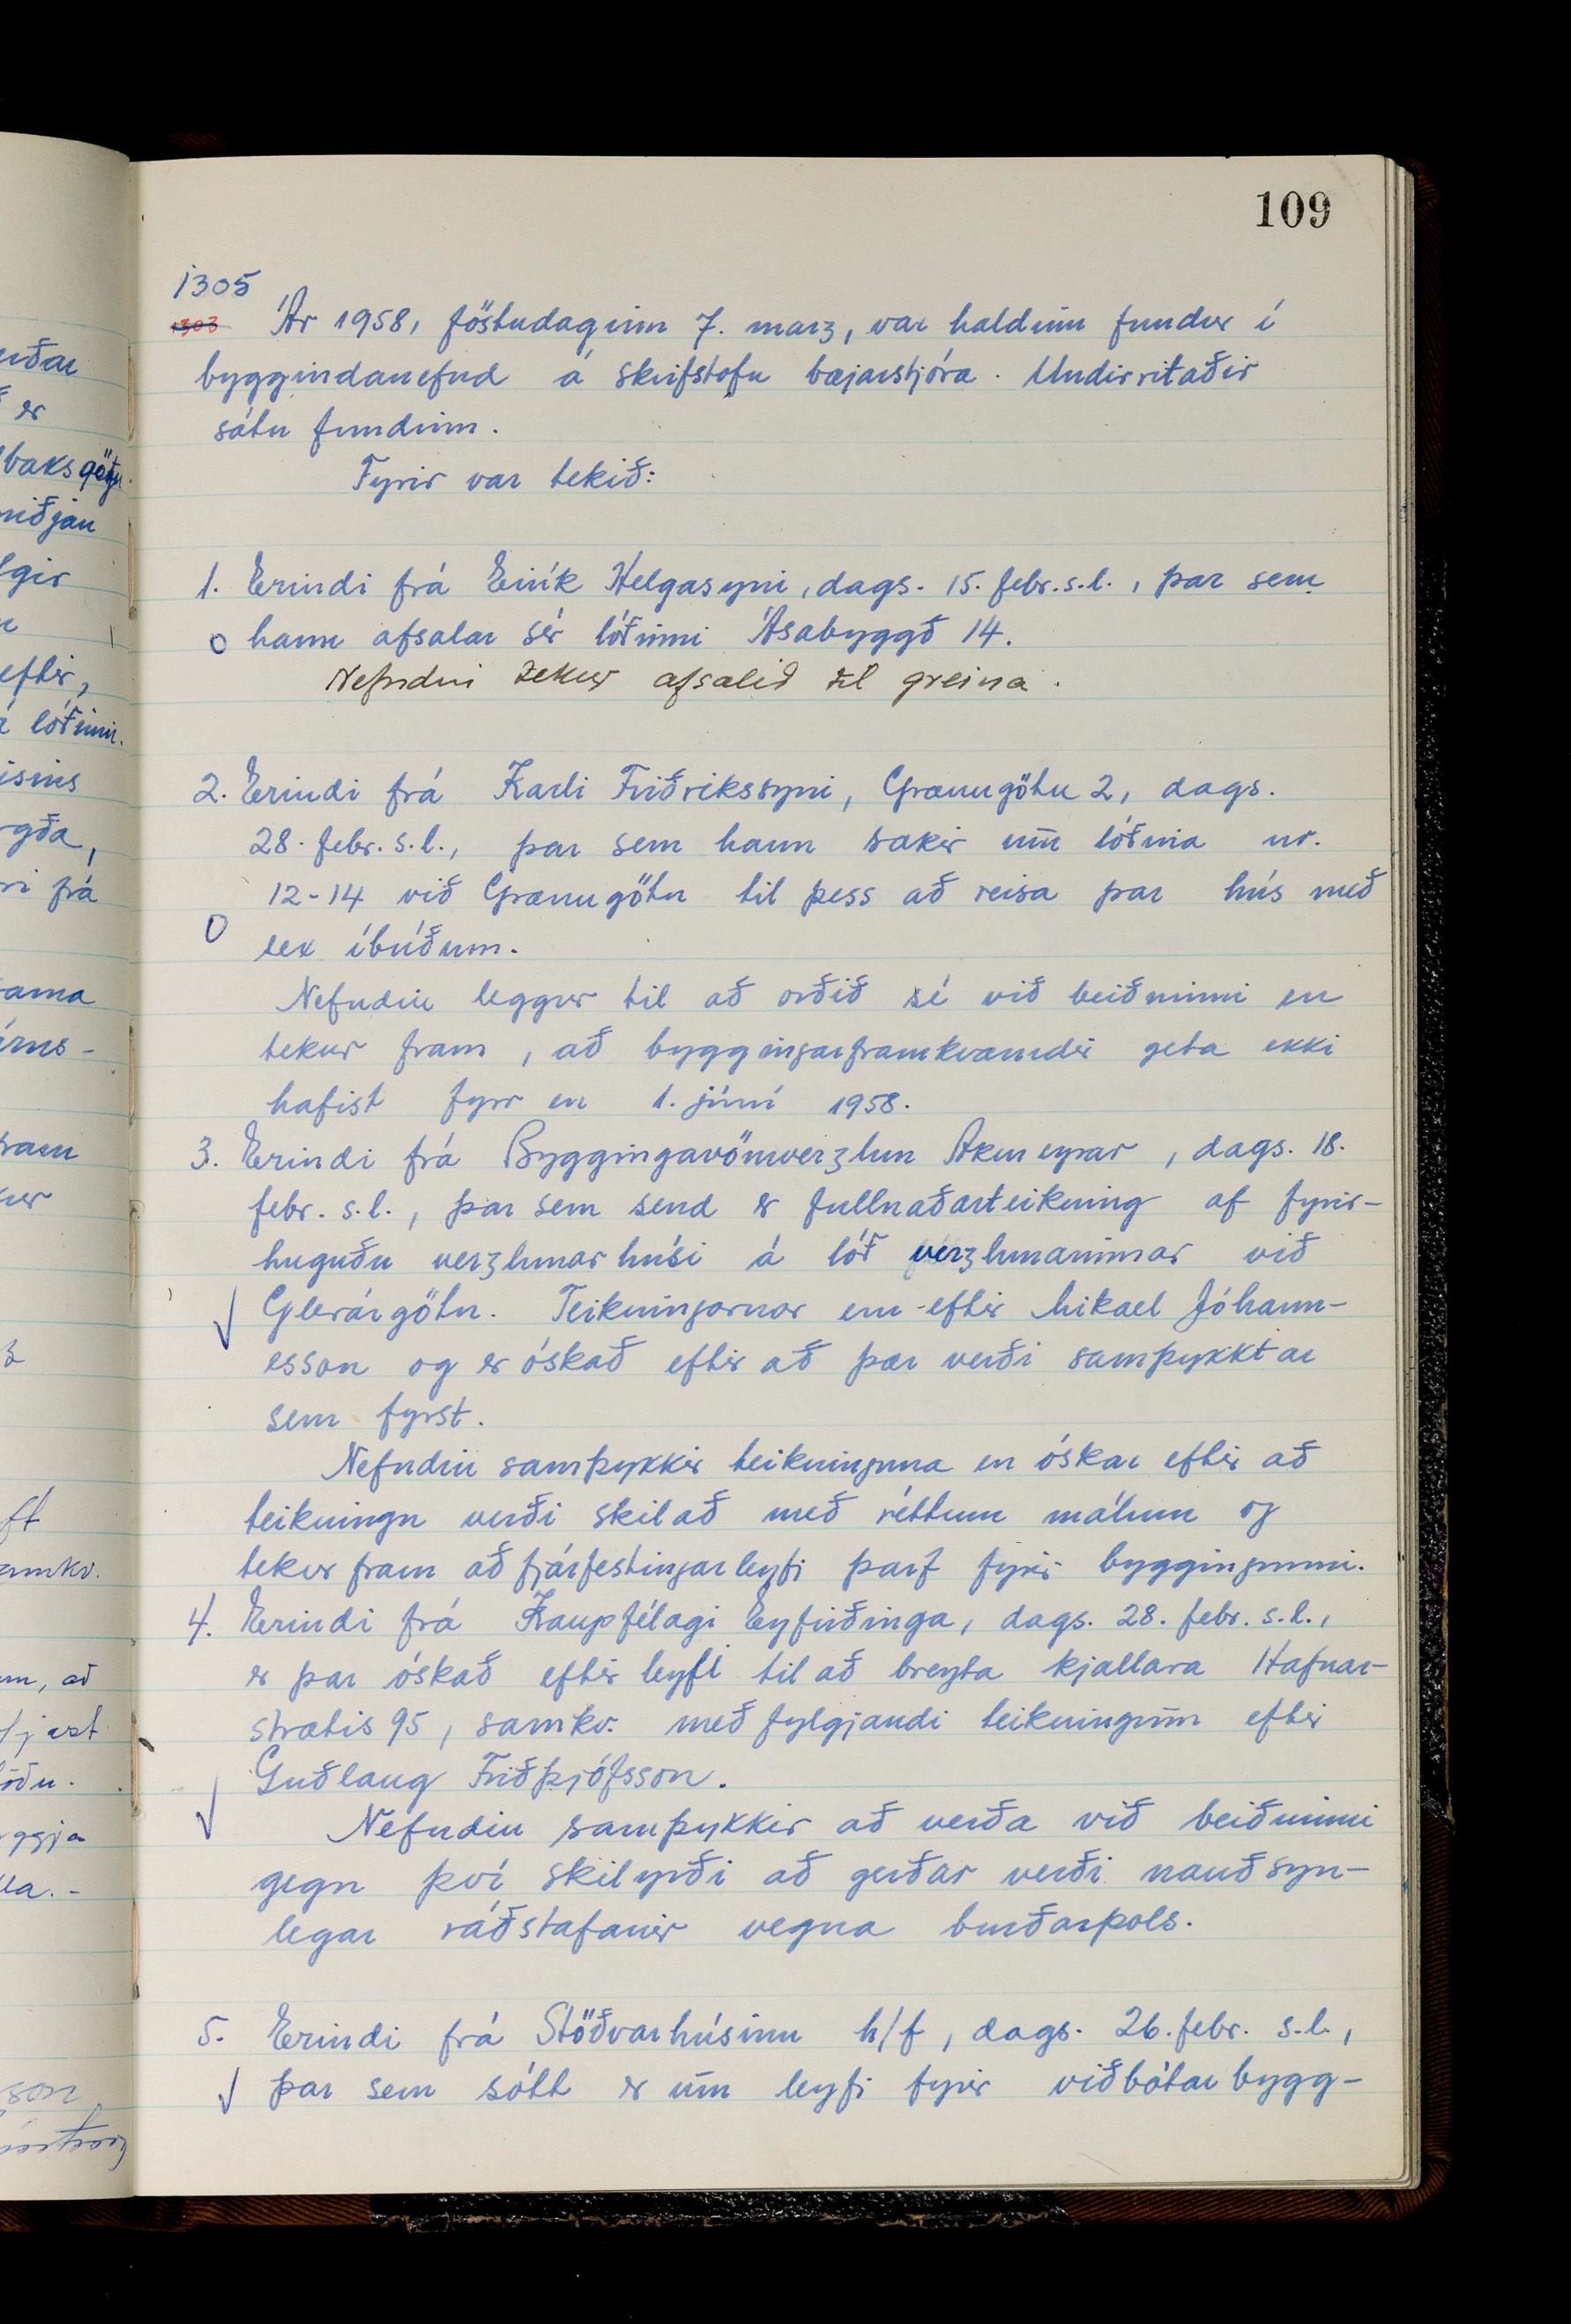 109
1305
1303 Ár 1958, föstudaginn 7. marz, var haldinn fundur í
byggindanefnd á skrifstofu bæjarstjóra. Undirritaðir
sátu fundinn.
Fyrir var tekið:
1. Erindi frá Eirík Helgasyni, dags. 15. febr. s.l., þar sem
o hann afsalar sér lóðinni Ásabyggð 14.
Nefndin tekur afsalið til greina.
2. Erindi frá Karli Friðrikssyni, Grænugötu 2, dags.
28. febr. s.l., þar sem hann sækir um lóðina nr.
12-14 við Grænugötu til þess að reisa þar hús með
o sex íbúðum.
Nefndin leggur til að orðið sé við beiðninni en
tekur fram, að byggingarframkvæmdir geta ekki
hafist fyrr en 1. júní 1958.
3. Erindi frá Byggingavöruverzlun Akureyrar, dags. 18.
febr. s.l., þar sem send er fullnaðarteikning af fyrir-
huguðu verzlunarhúsi á lóð verzlunarinnar við
√ Glerárgötu. Teikningarnar eru eftir Mikael Jóhann-
esson og er óskað eftir að þær verði samþykktar
sem fyrst.
Nefndin samþykkir teikninguna en óskar eftir að
teikningu verði skilað með réttum málum og
tekur fram að fjárfestingarleyfi þarf fyrir byggingunni.
4. Erindi frá Kaupfélagi Eyfirðinga, dags. 28. febr. s.l.,
er þar óskað eftir leyfi til að breyta kjallara Hafnar-
strætis 95, samkv. meðfylgjandi teikningum eftir
Guðlaug Friðþjófsson.
√ Nefndin samþykkir að verða við beiðninni
gegn því skilyrði að gerðar verði nauðsyn-
legar ráðstafanir vegna burðarþols.
5. Erindi frá Stöðvarhúsinu h/f, dags. 26. febr. s.l.,
√ þar sem sótt er um leyfi fyrir viðbótarbygg-